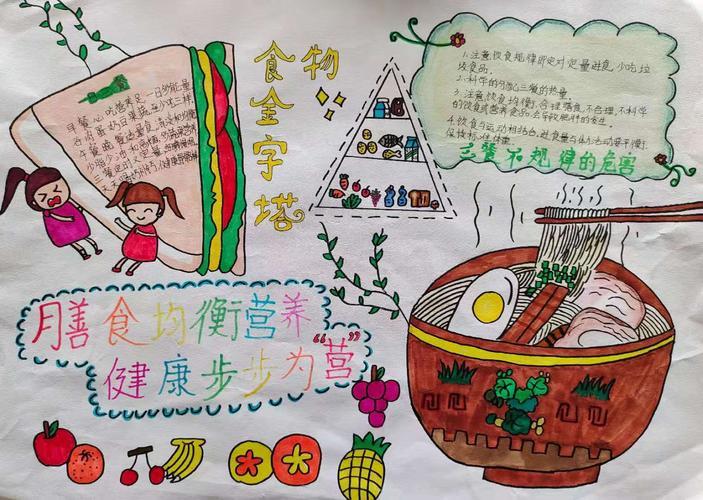 食物
金字塔
1.注意饮食规律即定时定量进食,少吃垃
圾食品。
2.科学的分配三餐的热量。
3.注意饮食均衡,合理膳食,不合理,不科学
的饮食或营养食品会导致肥胖的发生。
4.饮食与运动相结合,进食量与体力活动要平衡,
保持标准体重。
三餐不规律的危害
早餐 营养 足一日的能量
谷肉蛋奶豆果蔬 至少 三样
午餐
膳食均衡营养
健康步步为"营"